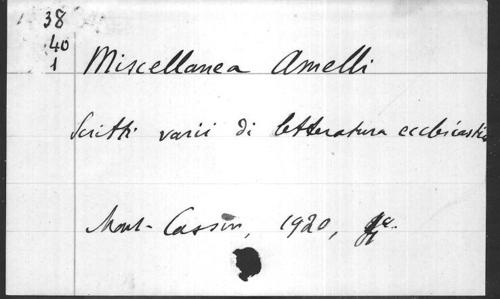 38
40
1
Miscellanea Amelli
Scritti varii di letteratura ecclesiastica
Mont-Cassin, 1920,